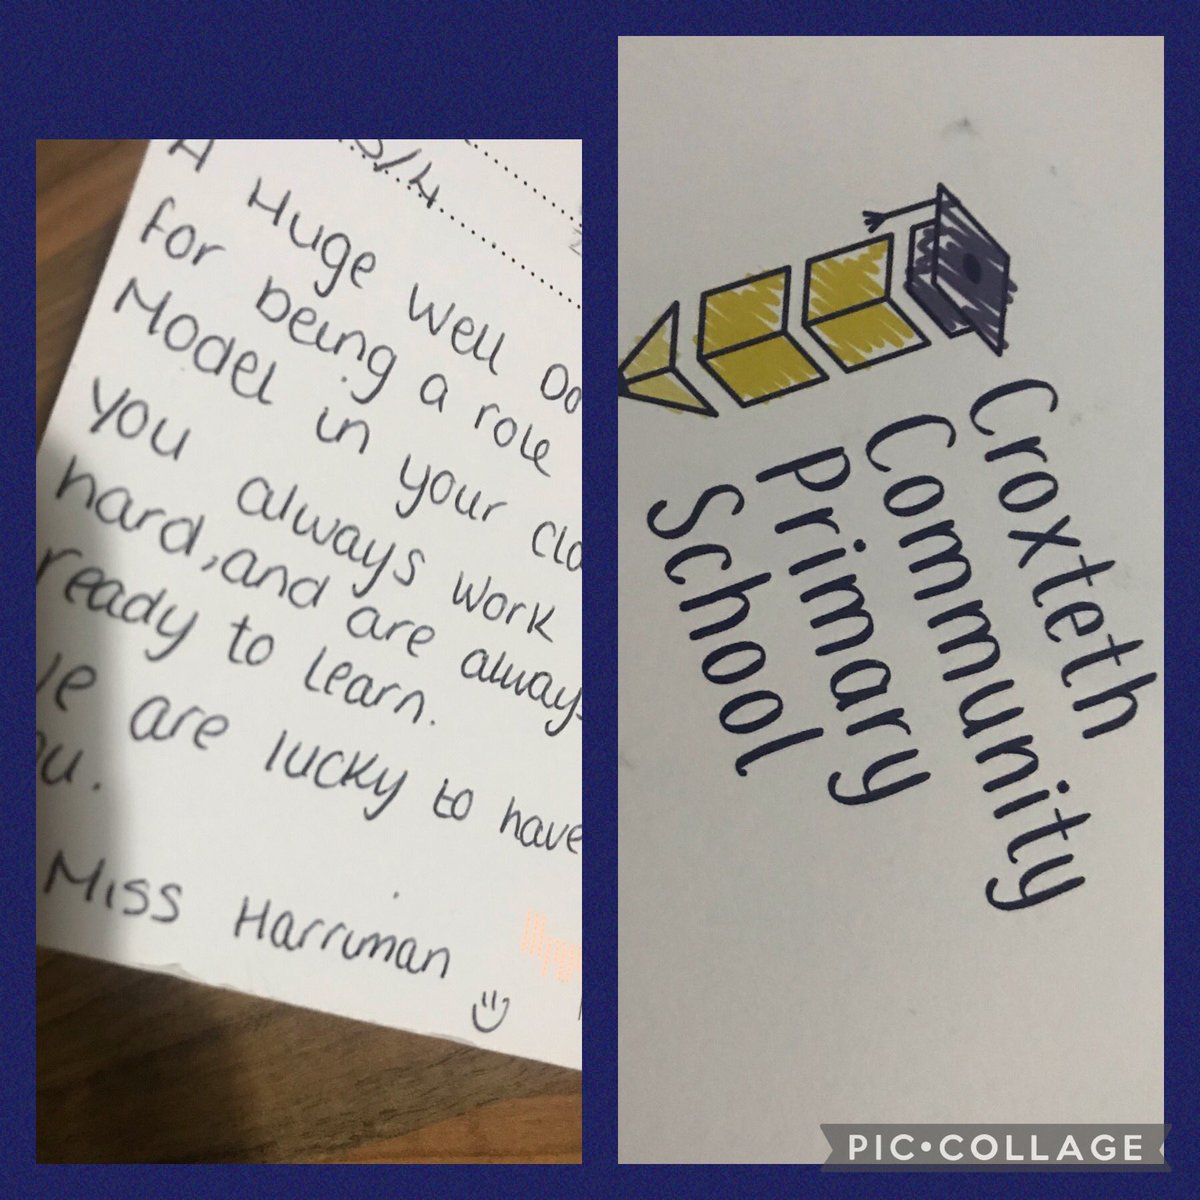 3/4
A Huge well
for being a role
Model in your
you always work
hard, and are always
ready to learn.
are lucky to have
Miss Harriman
Croxteth
Community
Primary
School
PIC•COLLAGE